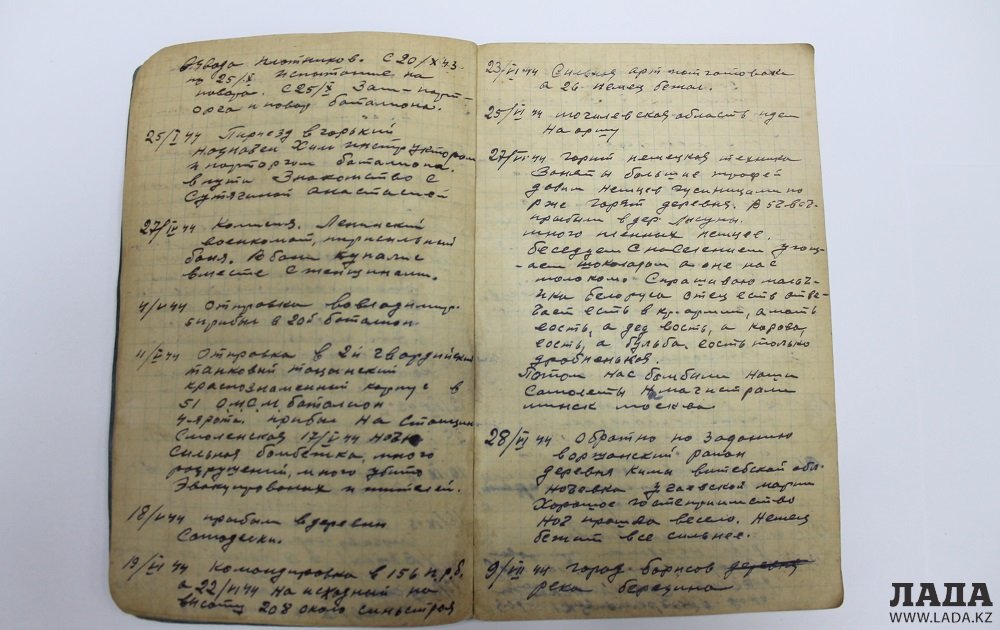 взвода плотников. С 20/X 43-
по 25/X испытание на
повара. С 25/X Зам-парт-
орга и повар батальона.
25/I 44 Приезд в горький
назначен Хим инструктором
и парторгом батальона.
в пути Знакомство с
Сутягиной анастасией
27/IV 44 Комисия. Ленинский
военкомат,
баня. В бани купались
вместе с женщинами.
4/V 44 отправка во владимир-
прибыл в 20й батальон
11/V 44 Отправка в 2й гвардийский
танковий тацинский
краснознаменний корпус в
51 О.М.С.М. батальон
4-ярота. прибыл на станцию
Смоленская 17/V 44 ночью
сильная бомбёжка, много
разрушений, много убито
эвакуированых и жителей.
18/V 44 прибыли в деревни
19/VI 44 Командировка в 156 п.р.б.
а 22/VI 44 на исходний на
висоту 208 около
23/VI 44 Сильная артподготовка
а 26 немец бежал.
25/VI 44 могилевская область идем
на оршу
27/VI 44 горит немецкая техника
Заняты большие трофеи
давим немцев гусиницами по
рже горят деревня. В
прибыли в дер.
много пленных немцев.
беседуем с населением угощ-
-аем шоколадом а оне нас
молоком. Спрашиваю мальч-
ика белоруса отец есть отве-
чает есть в кр. армии, а мать
ёость, а дед ёость, а корова,
ёость, а бульба ёость только
дробненькая.
Потом нас бомбили наши
самолеты на магистрали
минск москва
28/VI 44 Обратно по заданию
воршанский район
деревня Кими витебской обл.
ночевка у
Хорошое гостеприимство
ноч прошла весело. Немец
бежит все сильнее.
9/VII 44 город борисов деревня
река березина
ЛАДА
WWW.LADA.KZ